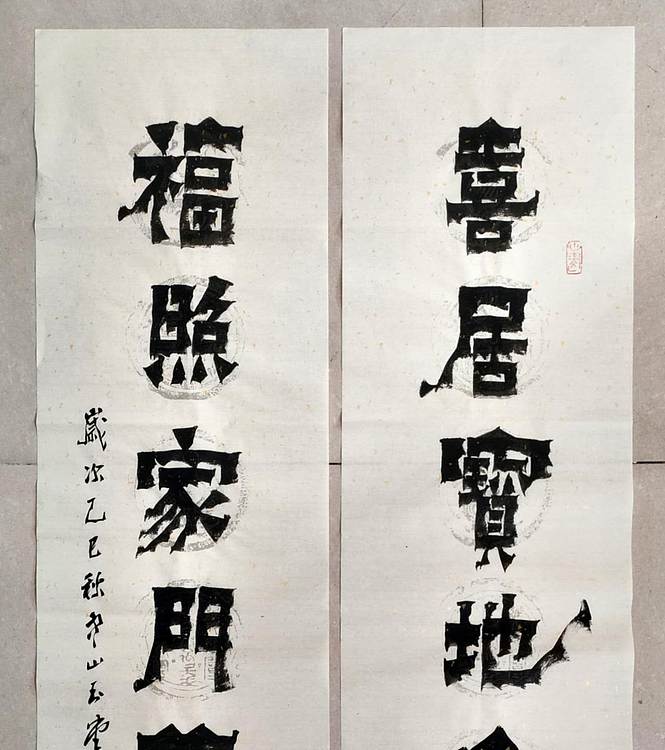 喜居寶地
福照家門
歲次乙巳秋